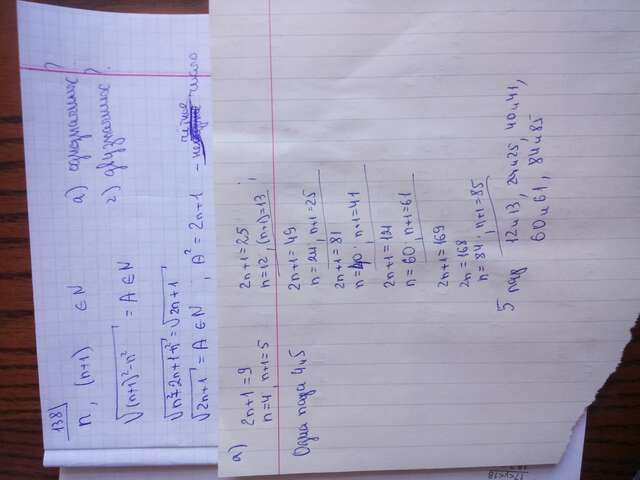 138)
n, (n+1) ∈ N
а) однозначных?
г) двузначных?
√((n+1)²-n²) = A ∈ N
√(n²+2n+1-n²) = √(2n+1)
√(2n+1) = A ∈ N, A² = 2n+1 - четное число
а)
2n+1=9
n=4, n+1=5
Одна пара 4и5
2n+1=25
n=12, (n+1)=13;
2n+1=49
n=24; n+1=25
2n+1=81
n=40; n+1=41
2n+1=121
n=60; n+1=61
2n+1=169
2n=168
n=84; n+1=85
5 пар 12и13, 24и25, 40и41,
60и61, 84и85